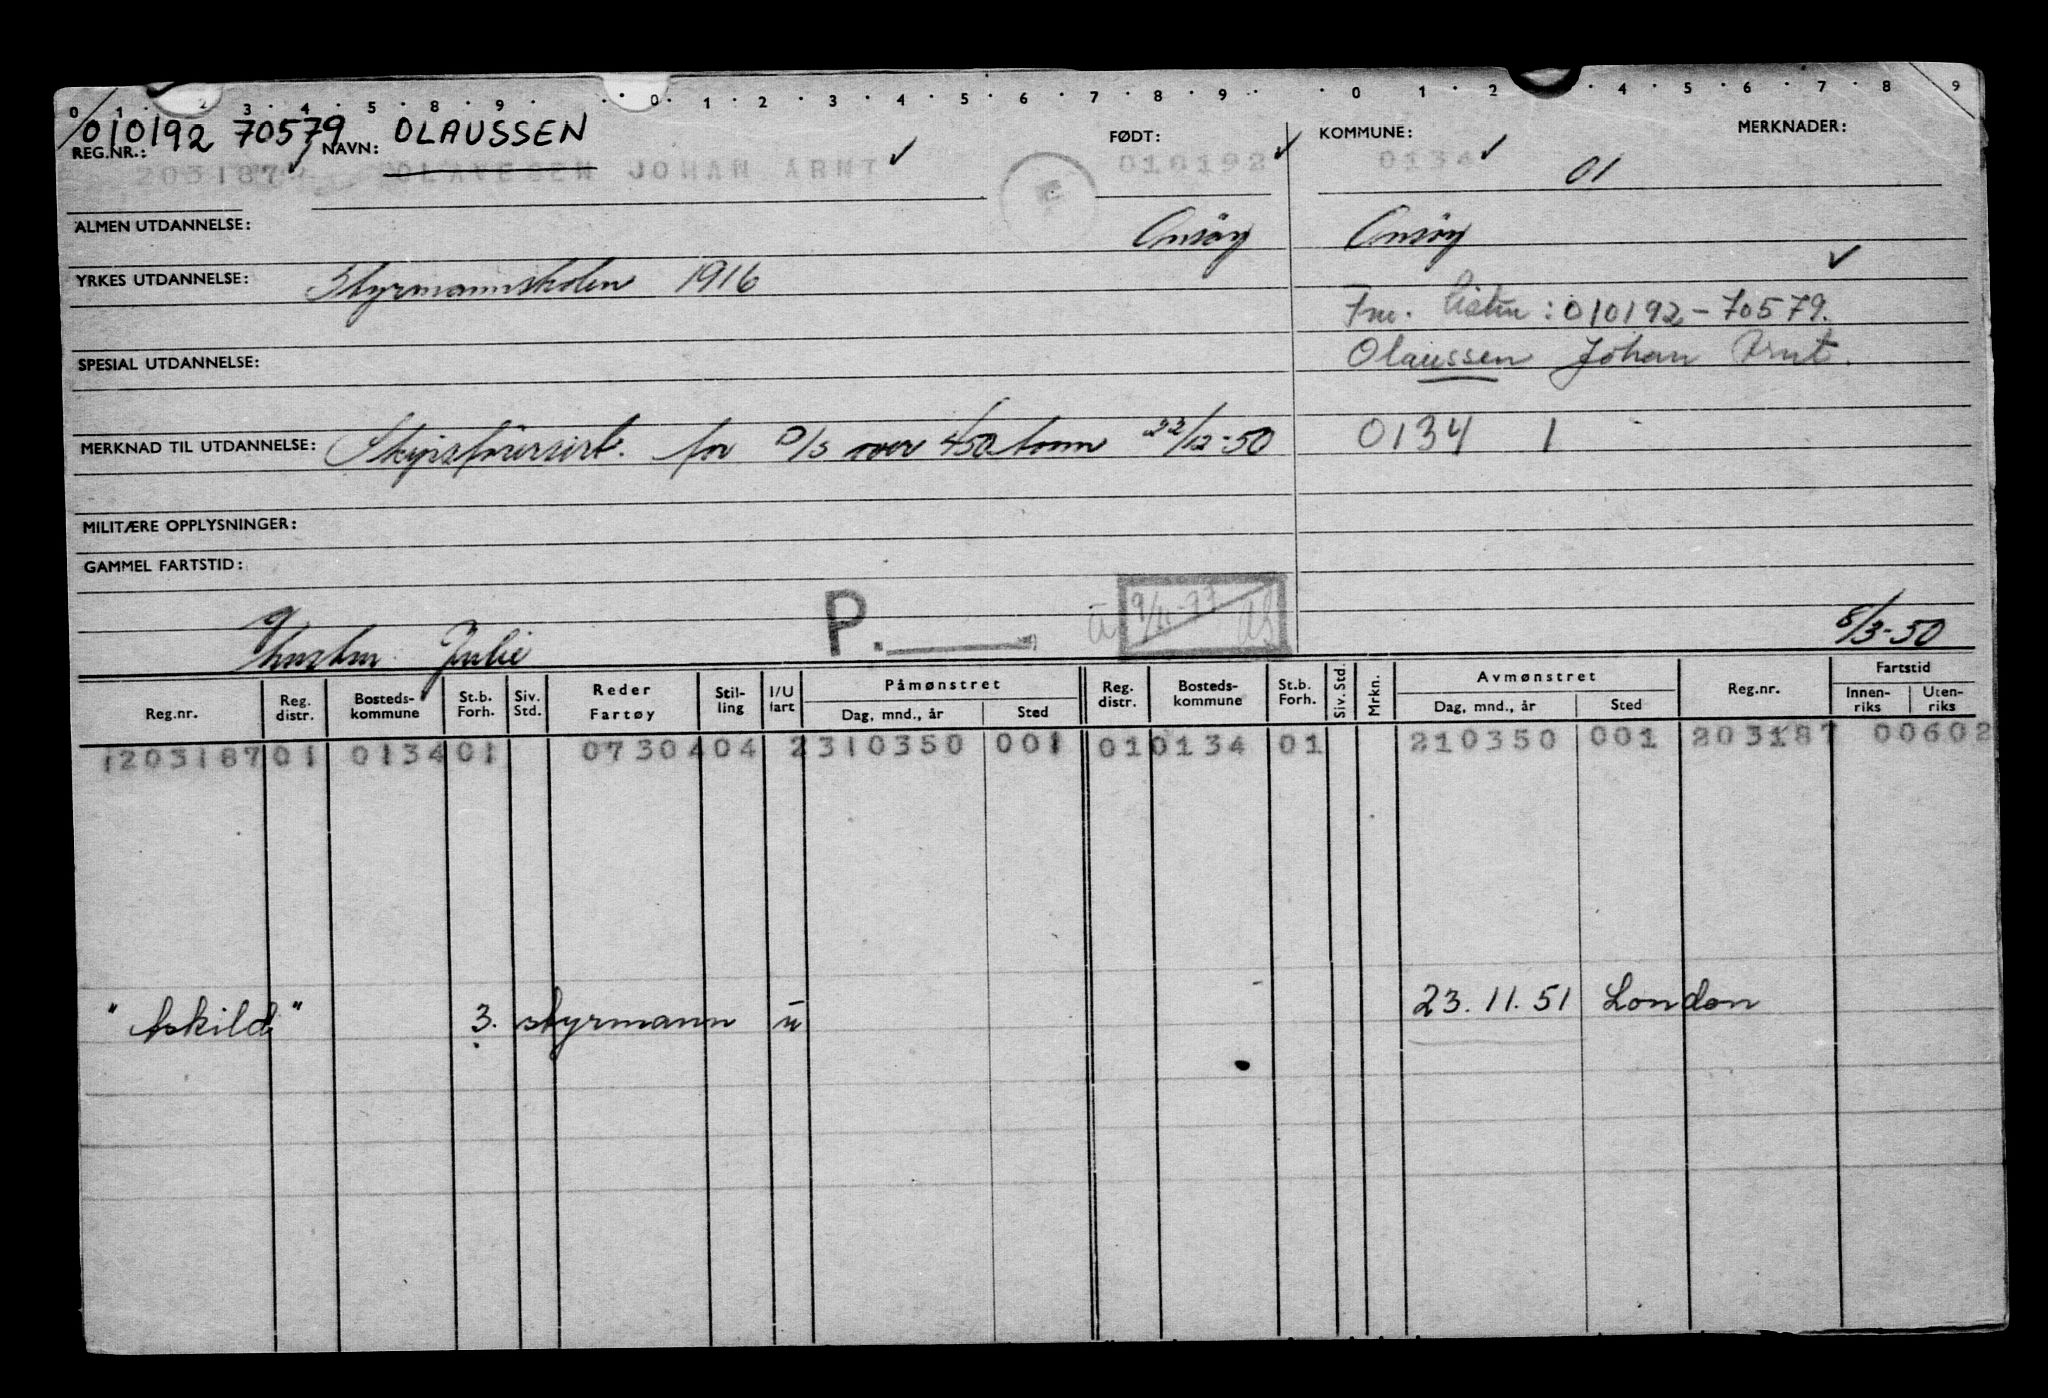 0 1 2 3 4 5 8 9 0 1 2 3 4 5 6 7 8 9 0 1 2 4 5 6 7 8 9
010192 70579 OLAUSSEN
REG.NR.: NAVN: FØDT: KOMMUNE: MERKNADER:
203187 OLAVESEN JOHAN ARNT 010192 0134 01
ALMEN UTDANNELSE: Onsøy Onsøy
YRKES UTDANNELSE: Styrmannskolen 1916
: 010192-70579.
SPESIAL UTDANNELSE: Olaussen Johan Arnt.
MERKNAD TIL UTDANNELSE: Skipsførersert. for D/S over 450 tonn 22/12-50 0134 1
MILITÆRE OPPLYSNINGER:
GAMMEL FARTSTID:
P. 9/11-77
Julie 8/3-50
Reg.nr. Reg. distr. Bosteds-kommune St.b. Forh. Siv. Std. Reder Fartøy Stil-ling I/U fart Påmønstret Dag, mnd., år Sted Reg. distr. Bosteds-kommune St.b. Forh. Siv. Std. Mrkn. Avmønstret Dag, mnd., år Sted Reg.nr. Fartstid Innen-riks Uten-riks
1203187 01 0134 01 07304 04 2 310350 001 01 0134 01 210350 001 203187 00602
"Askild" 3. styrmann u 23.11.51 London